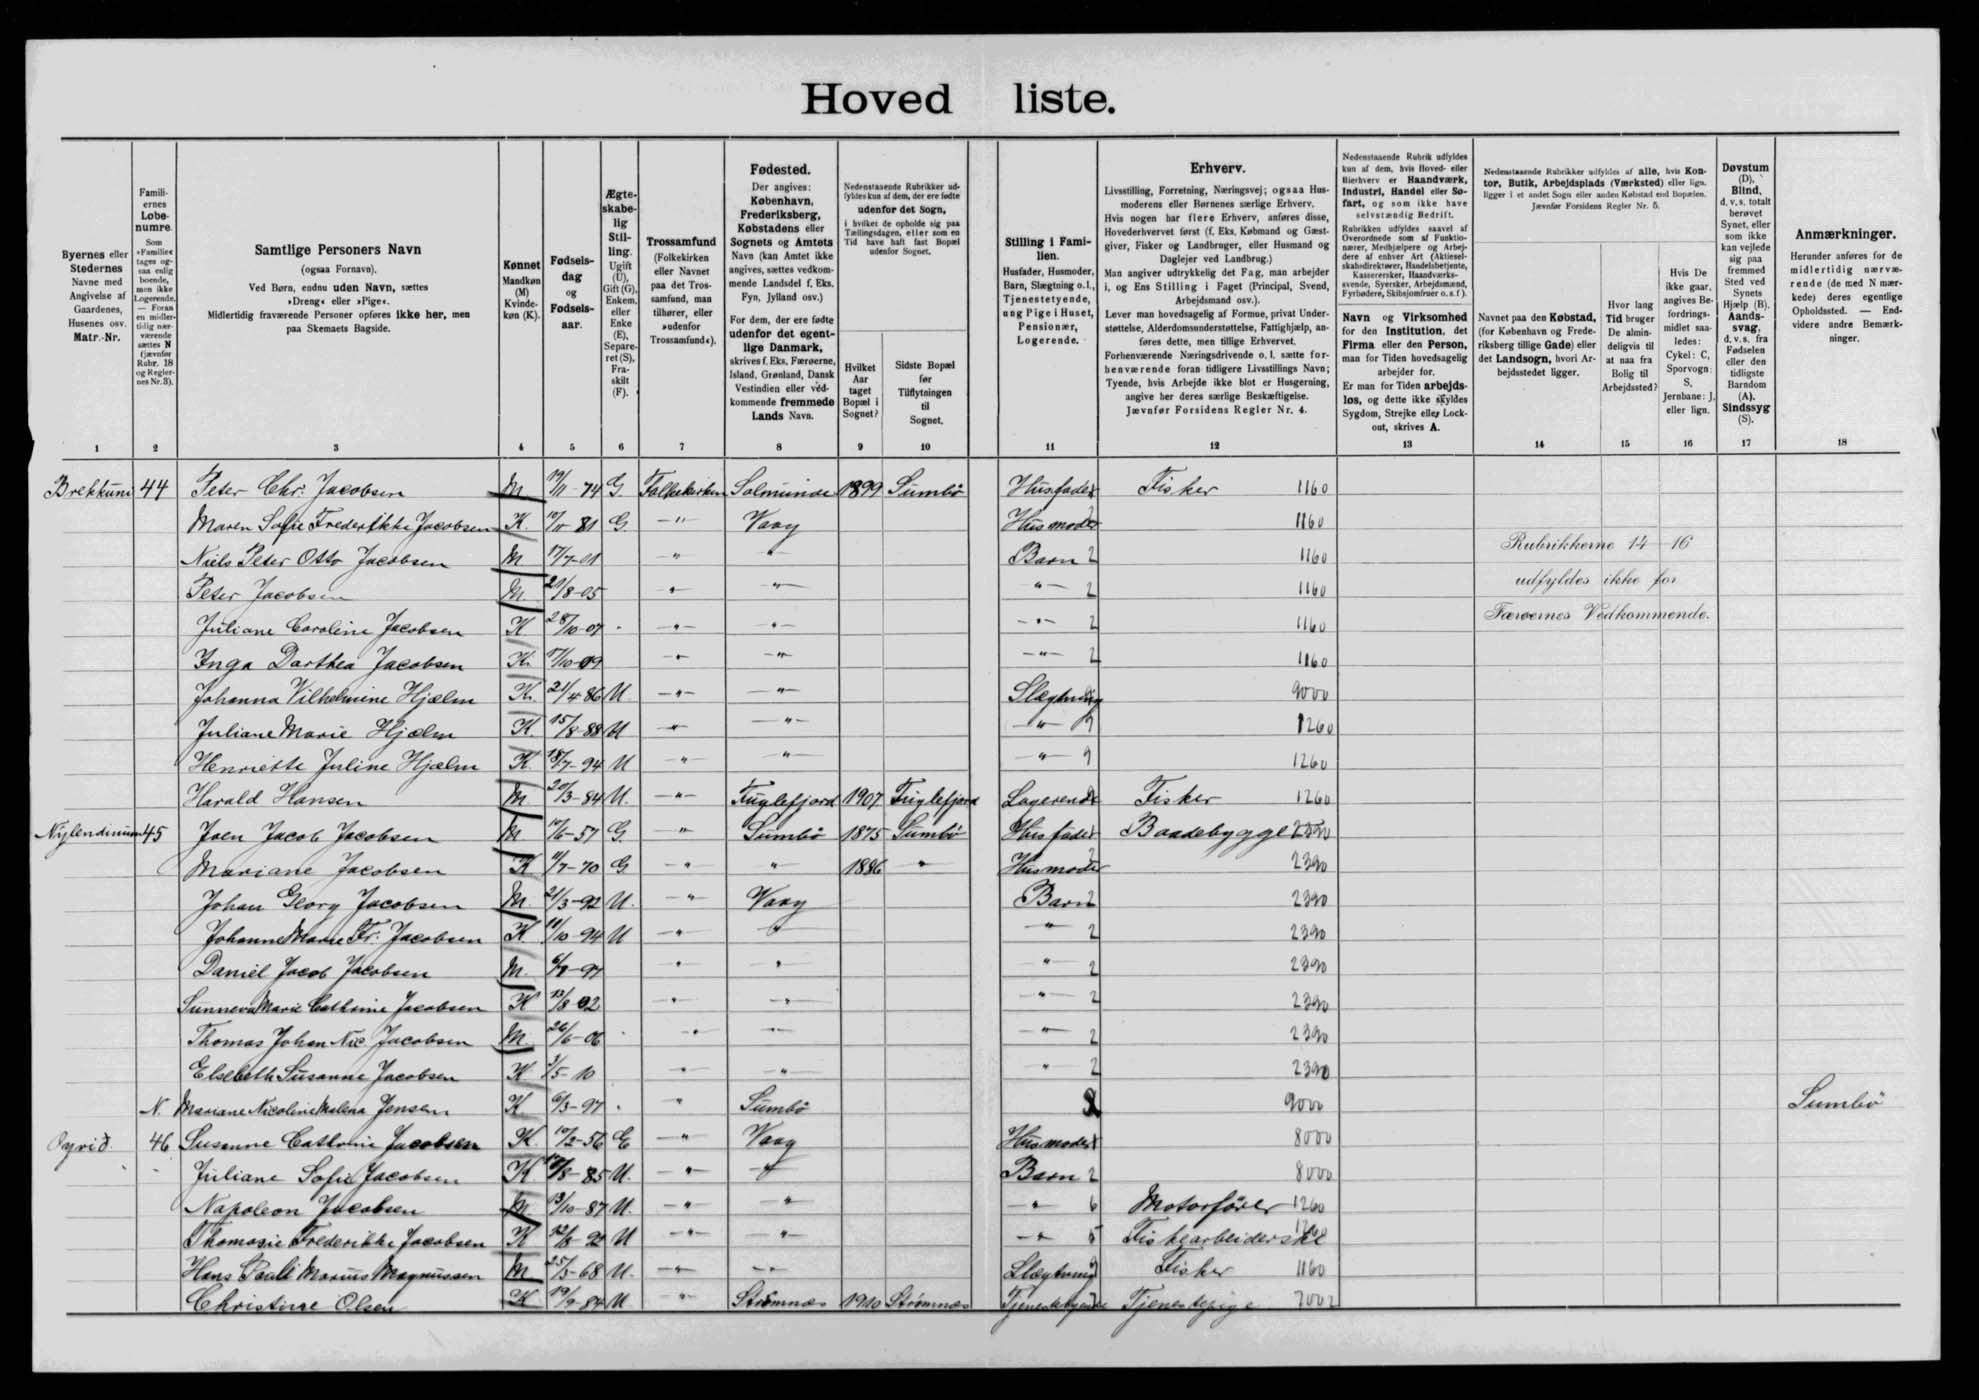 Hoved liste.
Byernes eller Stedernes Navne med Angivelse af Gaardenes, Husenes osv. Matr.-Nr.
Famili- ernes Løbe- numre. Som »Familie« tages og- saa enlig boende, men ikke Logerende. — Foran en midler- tidig nær- værende sættes N (jævnfør Rubr. 18 og Regler- nes Nr. 3).
Samtlige Personers Navn
(ogsaa Fornavn).
Ved Børn, endnu uden Navn, sættes
»Dreng« eller »Pige«.
Midlertidig fraværende Personer opføres ikke her, men
paa Skemaets Bagside.
Kønnet Mandkøn (M) Kvinde- køn (K).
Fødsels- dag og Fødsels- aar.
Ægte- skabe- lig Stil- ling. Ugift (U), Gift (G), Enkem. eller Enke (E), Separe- ret (S), Fra- skilt (F).
Trossamfund (Folkekirken eller Navnet paa det Tros- samfund, man tilhører, eller »udenfor Trossamfund«).
Fødested.
Der angives: København, Frederiksberg, Købstadens eller Sognets og Amtets Navn (kan Amtet ikke angives, sættes vedkom- mende Landsdel f. Eks. Fyn, Jylland osv.)
For dem, der ere fødte udenfor det egent- lige Danmark, skrives f. Eks. Færøerne, Island, Grønland, Dansk Vestindien eller ved- kommende fremmede Lands Navn.
Nedenstaaende Rubrikker ud- fyldes kun af dem, der ere fødte udenfor det Sogn, i hvilket de opholde sig paa Tællingsdagen, eller som en Tid have haft fast Bopæl udenfor Sognet.
Hvilket Aar taget Bopæl i Sognet?
Sidste Bopæl før Tilflytningen til Sognet.
Stilling i Fami- lien.
Husfader, Husmoder, Barn, Slægtning o. l., Tjenestetyende, ung Pige i Huset, Pensionær, Logerende.
Erhverv.
Livsstilling, Forretning, Næringsvej; ogsaa Hus- moderens eller Børnenes særlige Erhverv.
Hvis nogen har flere Erhverv, anføres disse, Hovederhvervet først (f. Eks. Købmand og Gæst- giver, Fisker og Landbruger, eller Husmand og Daglejer ved Landbrug.)
Man angiver udtrykkelig det Fag, man arbejder i, og Ens Stilling i Faget (Principal, Svend, Arbejdsmand osv.).
Lever man hovedsagelig af Formue, privat Under- støttelse, Alderdomsunderstøttelse, Fattighjælp, an- føres dette, men tillige Erhvervet.
Forhenværende Næringsdrivende o. l. sætte for- henværende foran tidligere Livsstillings Navn; Tyende, hvis Arbejde ikke blot er Husgerning, angive her deres særlige Beskæftigelse.
Jævnfør Forsidens Regler Nr. 4.
Nedenstaaende Rubrik udfyldes kun af dem, hvis Hoved- eller Bierhverv er Haandværk, Industri, Handel eller Sø- fart, og som ikke have selvstændig Bedrift.
Rubrikken udfyldes saavel af Overordnede som af Funktio- nærer, Medhjælpere og Arbej- dere af enhver Art (Aktiesel- skabsdirektører, Handelsbetjente, Kassererske, Haandværks- svende, Syersker, Arbejdsmænd, Fyrbødere, Skibsjomfruer o. s. f.).
Navn og Virksomhed for den Institution, det Firma eller den Person, man for Tiden hovedsagelig arbejder for.
Er man for Tiden arbejds- løs, og dette ikke skyldes Sygdom, Strejke eller Lock- out, skrives A.
Nedenstaaende Rubrikker udfyldes af alle, hvis Kon- tor, Butik, Arbejdsplads (Værksted) eller lign. ligger i et andet Sogn eller anden Købstad end Bopælen. Jævnfør Forsidens Regler Nr. 5.
Navnet paa den Købstad, (for København og Frede- riksberg tillige Gade) eller det Landsogn, hvori Ar- bejdsstedet ligger.
Hvor lang Tid bruger De almin- deligvis til at naa fra Bolig til Arbejdssted?
Hvis De ikke gaar, angives Be- fordrings- midlet saa- ledes: Cykel: C, Sporvogn: S, Jernbane: J, eller lign.
Døvstum (D), Blind, d. v. s. totalt berøvet Synet, eller som ikke kan vejlede sig paa fremmed Sted ved Synets Hjælp (B). Aands- svag, d. v. s. fra Fødselen eller den tidligste Barndom (A). Sindssyg (S).
Anmærkninger.
Herunder anføres for de midlertidig nærvæ- rende (de med N mær- kede) deres egentlige Opholdssted. — End- videre andre Bemærk- ninger.
1 2 3 4 5 6 7 8 9 10 11 12 13 14 15 16 17 18
Brekkuni 44 Peter Chr: Jacobsen M 19/11-74 G Folkekirken Solmunde 1899 Sumbø Husfader Fisker 1160
Maren Sofie Frederikke Jacobsen K. 10/11 81 G. —"— Vaag Husmoder 1160
Niels Peter Otto Jacobsen M 17/7-01 —"— —"— Barn 2 1160
Rubrikkerne 14—16
Peter Jacobsen M. 21/8-05 —"— —"— —"— 2 1160
udfyldes ikke for
Juliane Caroline Jacobsen K 28/10-07 —"— —"— —"— 2 1160
Færøernes Vedkommende.
Inga Darthea Jacobsen K. 17/10-09 —"— —"— —"— 2 1160
Johanna Vilhelmine Hjælm K. 21/4 86 U. —"— —"— Slægtning 9000
Juliane Marie Hjælm K. 15/8-88 U —"— —"— —"— 9 1260
Henriette Juline Hjælm K. 18/7-94 U —"— —"— —"— 9 1260
Harald Hansen M 20/3-84 U. —"— Fuglefjord 1907 Fuglefjord Logerende Fisker 1260
Nylendinum 45 Joen Jacob Jacobsen M 10/6-57 G. —"— Sumbø 1875 Sumbø Husfader Baadebygger 2390
Mariane Jacobsen K 11/7-70 G —"— —"— 1886 —"— Husmoder 2390
Johan Georg Jacobsen M. 21/3-92 U. —"— Vaag Barn 2 2390
Johanne Marie Fr: Jacobsen K. 11/10-94 U —"— —"— —"— 2 2390
Daniel Jacob Jacobsen M. 6/8-97 —"— —"— —"— 2 2390
Sunneva Marie Cathrine Jacobsen K 13/8-02 —"— —"— —"— 2 2390
Thomas Johan Nic. Jacobsen M. 26/6-06 —"— —"— —"— 2 2390
Elsebeth Susanne Jacobsen K 3/5-10 —"— —"— —"— 2 2390
N. Mariane Nicoline Malena Jensen K 6/3-97 " Sumbø 9000 Sumbø
Ogrid. 46 Susanne Cathrine Jacobsen K. 10/2-56 E —"— Vaag Husmoder 8000
Juliane Sofie Jacobsen K. /8-85 U. —"— —"— Barn 2 8000
Napoleon Jacobsen M. 13/10-87 U. —"— —"— —"— 6 Motorfører 1260
Thomasie Frederikke Jacobsen K 22/8-92 U —"— —"— —"— 5 Fiskearbeiderske
Hans Pauli Marius Magnussen M 25/5-68 U. —"— —"— Slægtning Fisker 1160
Christine Olsen K 19/9-84 U —"— Strømnæs 1910 Strømnæs Tjenestetyende Tjenestepige 7002